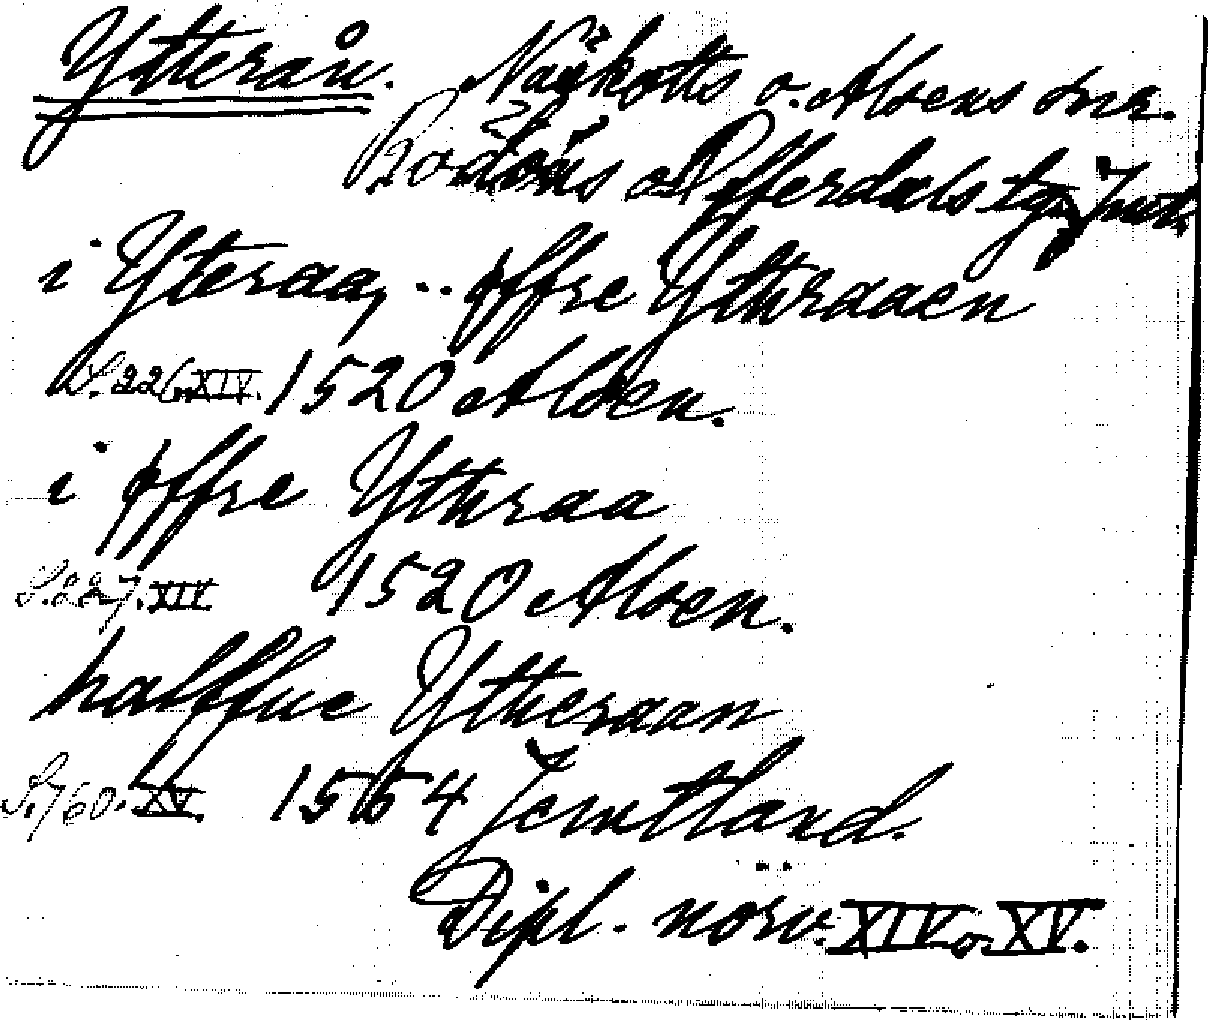 Ytterån. Näskotts o. Alsens snr.
Rödöns o Offerdals tg. Jmtl.
i Yteraa, .. øffre Ythraaen
S. 226. XIV. 1520 Alsen.
i øffre Ythraa
S. 227. XIV 1520 Alsen.
halffue Ytheraan
S. 760. XV. 1554 Jemtland.
Dipl. norv. XIV o. XV.